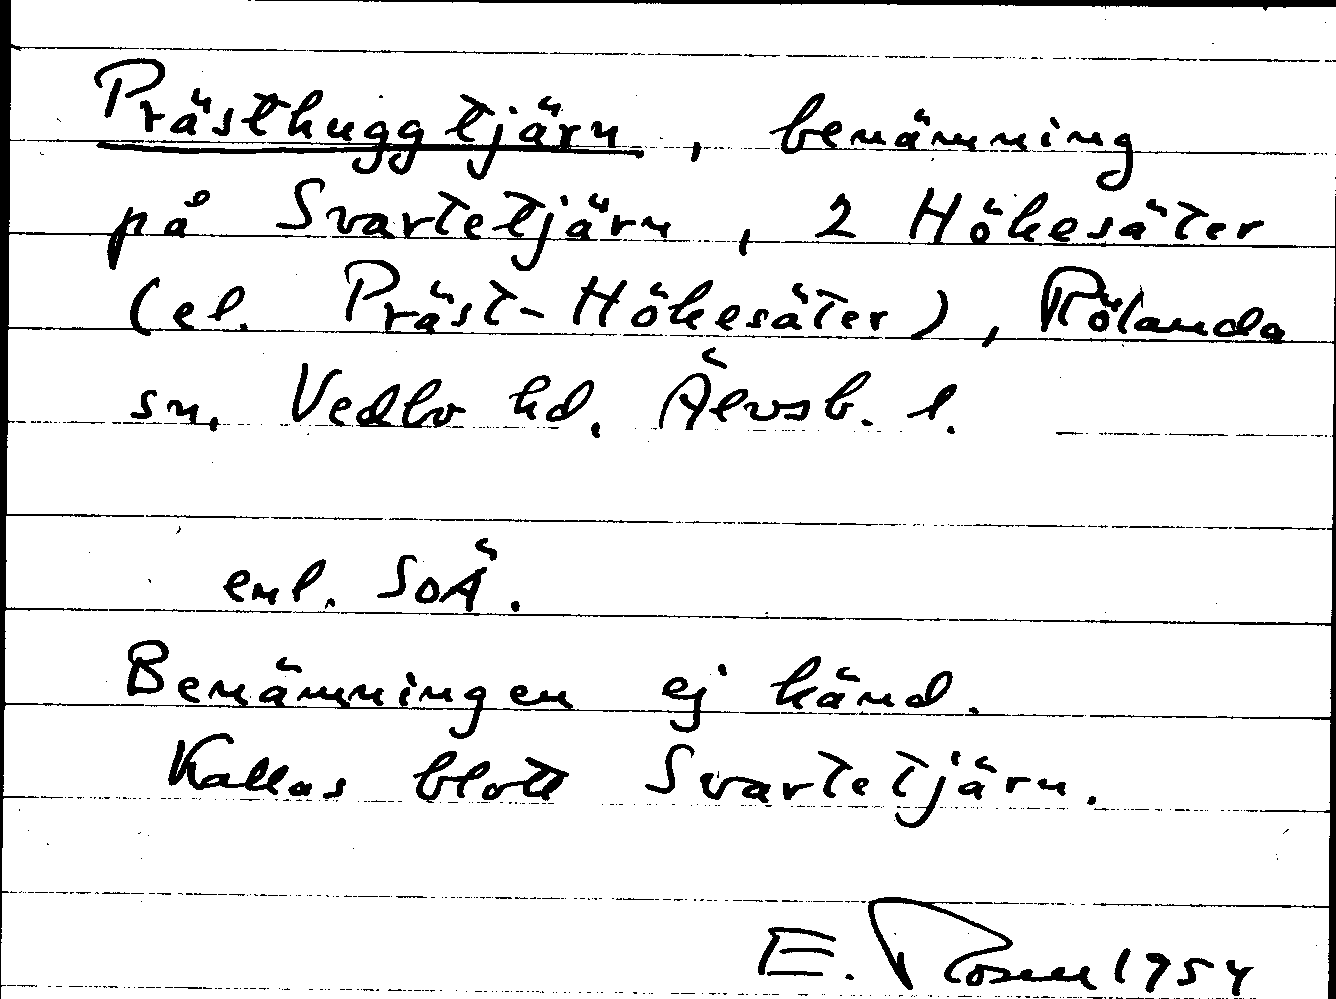 Prästhuggtjärn, benämning
på Svartetjärn, 2 Hökesäter
(el. Präst-Hökesäter), Rölanda
sn. Vedbo hd. Älvsb. l.
enl. SOÄ.
Benämningen ej känd.
Kallas blott Svartetjärn.
E. Rosell 1954